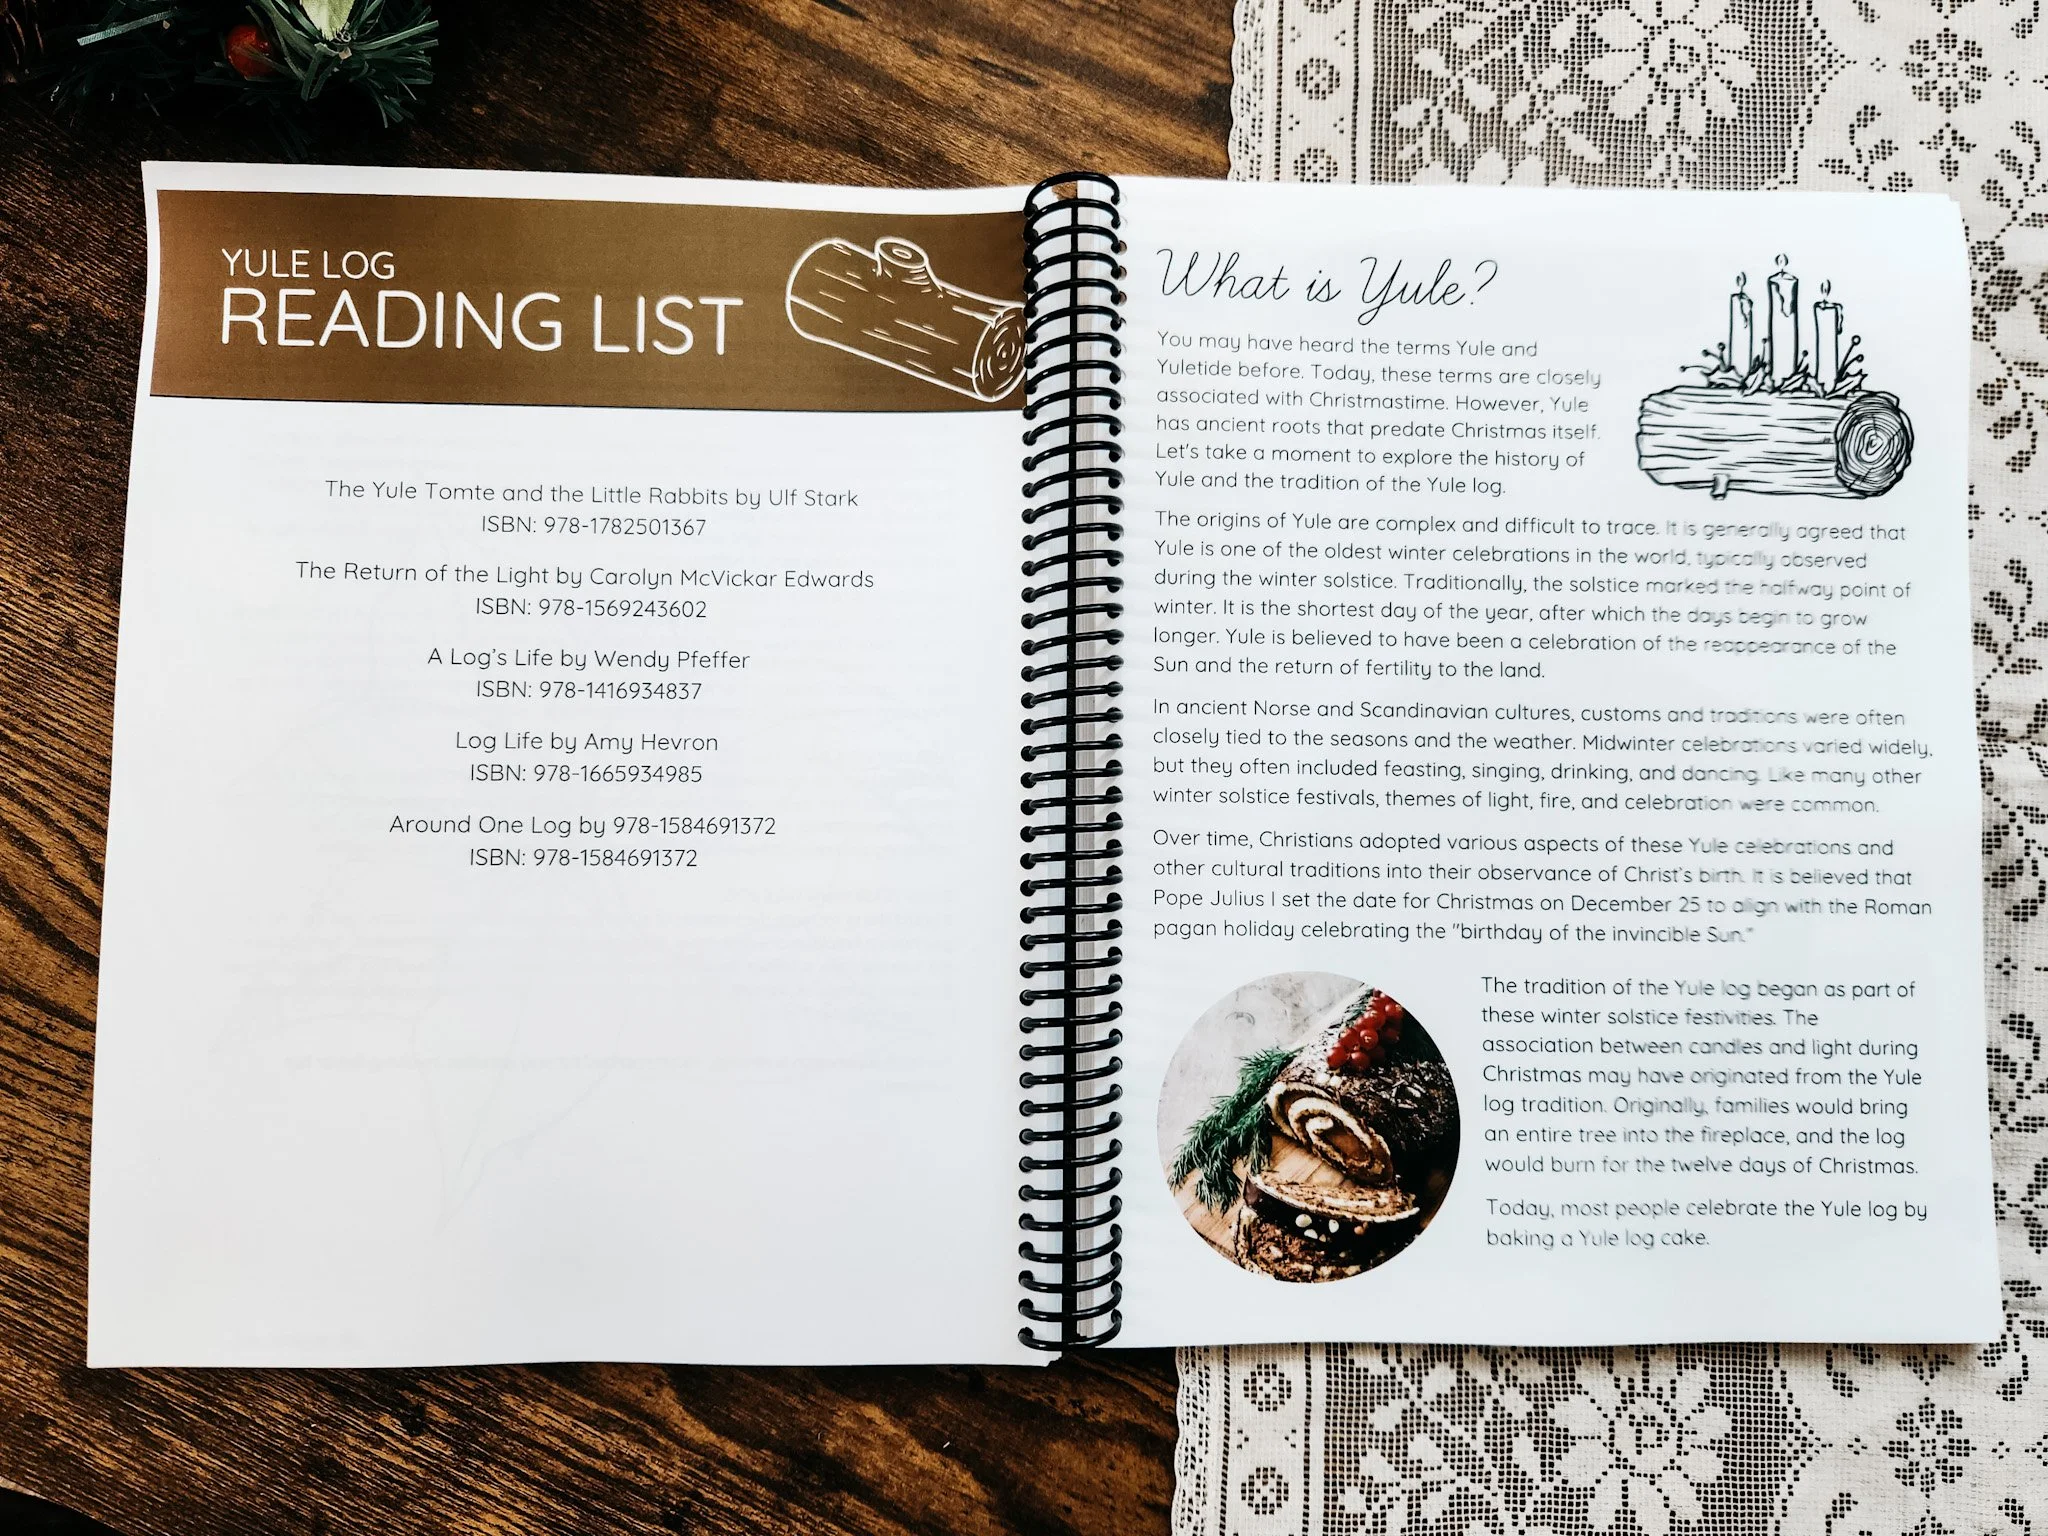 YULE LOG
READING LIST
The Yule Tomte and the Little Rabbits by Ulf Stark
ISBN: 978-1782501367
The Return of the Light by Carolyn McVickar Edwards
ISBN: 978-1569243602
A Log's Life by Wendy Pfeffer
ISBN: 978-1416934837
Log Life by Amy Hevron
ISBN: 978-1665934985
Around One Log by 978-1584691372
ISBN: 978-1584691372
What is Yule?
You may have heard the terms Yule and
Yuletide before. Today, these terms are closely
associated with Christmastime. However, Yule
has ancient roots that predate Christmas itself.
Let's take a moment to explore the history of
Yule and the tradition of the Yule log.
The origins of Yule are complex and difficult to trace. It is generally agreed that
Yule is one of the oldest winter celebrations in the world, typically observed
during the winter solstice. Traditionally, the solstice marked the halfway point of
winter. It is the shortest day of the year, after which the days begin to grow
longer. Yule is believed to have been a celebration of the reappearance of the
Sun and the return of fertility to the land.
In ancient Norse and Scandinavian cultures, customs and traditions were often
closely tied to the seasons and the weather. Midwinter celebrations varied widely,
but they often included feasting, singing, drinking, and dancing. Like many other
winter solstice festivals, themes of light, fire, and celebration were common.
Over time, Christians adopted various aspects of these Yule celebrations and
other cultural traditions into their observance of Christ's birth. It is believed that
Pope Julius I set the date for Christmas on December 25 to align with the Roman
pagan holiday celebrating the "birthday of the invincible Sun."
The tradition of the Yule log began as part of
these winter solstice festivities. The
association between candles and light during
Christmas may have originated from the Yule
log tradition. Originally, families would bring
an entire tree into the fireplace, and the log
would burn for the twelve days of Christmas.
Today, most people celebrate the Yule log by
baking a Yule log cake.